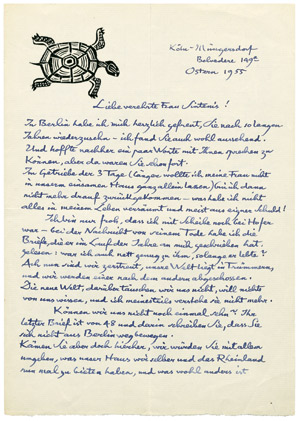 Köln-Müngersdorf
Belvedere 149c
Ostern 1955
Liebe verehrte Frau Sintenis!
In Berlin habe ich mich herzlich gefreut, Sie nach so langen
Jahren wiederzusehn – ich fand Sie auch wohl aussehend.
Und hoffte nachher ein paar Worte mit Ihnen sprechen zu
können, aber da waren Sie schon fort.
Im Getriebe der 3 Tage länger wollte ich meine Frau nicht
in unserem einsamen Haus ganz allein lassen bin ich dann
nicht mehr darauf zurückgekommen – was habe ich nicht
alles in meinem Leben versäumt und meist aus eigner Schuld!
Ich bin nur froh, dass ich mit Schiele noch bei Hofer
war – bei der Nachricht von seinem Tode habe ich die
Briefe, die er im Laufe der Jahre an mich geschrieben hat,
gelesen: war ich auch nett genug zu ihm, solange er lebte?
Ach wir sind, wir zerstreut, unsre Welt liegt in Trümmern,
und wir werden einer nach dem andern abgeschossen.
Die neue Welt, darüber täuschen wir uns nicht, will nichts
von uns wissen, und ich meinesteils verstehe sie nicht mehr.
Können wir uns nicht noch einmal sehn? Ihr
letzter Brief ist von 48 und darin schreiben Sie, dass Sie
sich nicht aus Berlin wegbewegen.
Kämen Sie aber doch hierher, wir würden Sie mit allem
umgeben, was unser Haus wir selber und das Rheinland
nun mal zu bieten haben, und was wohl anders ist